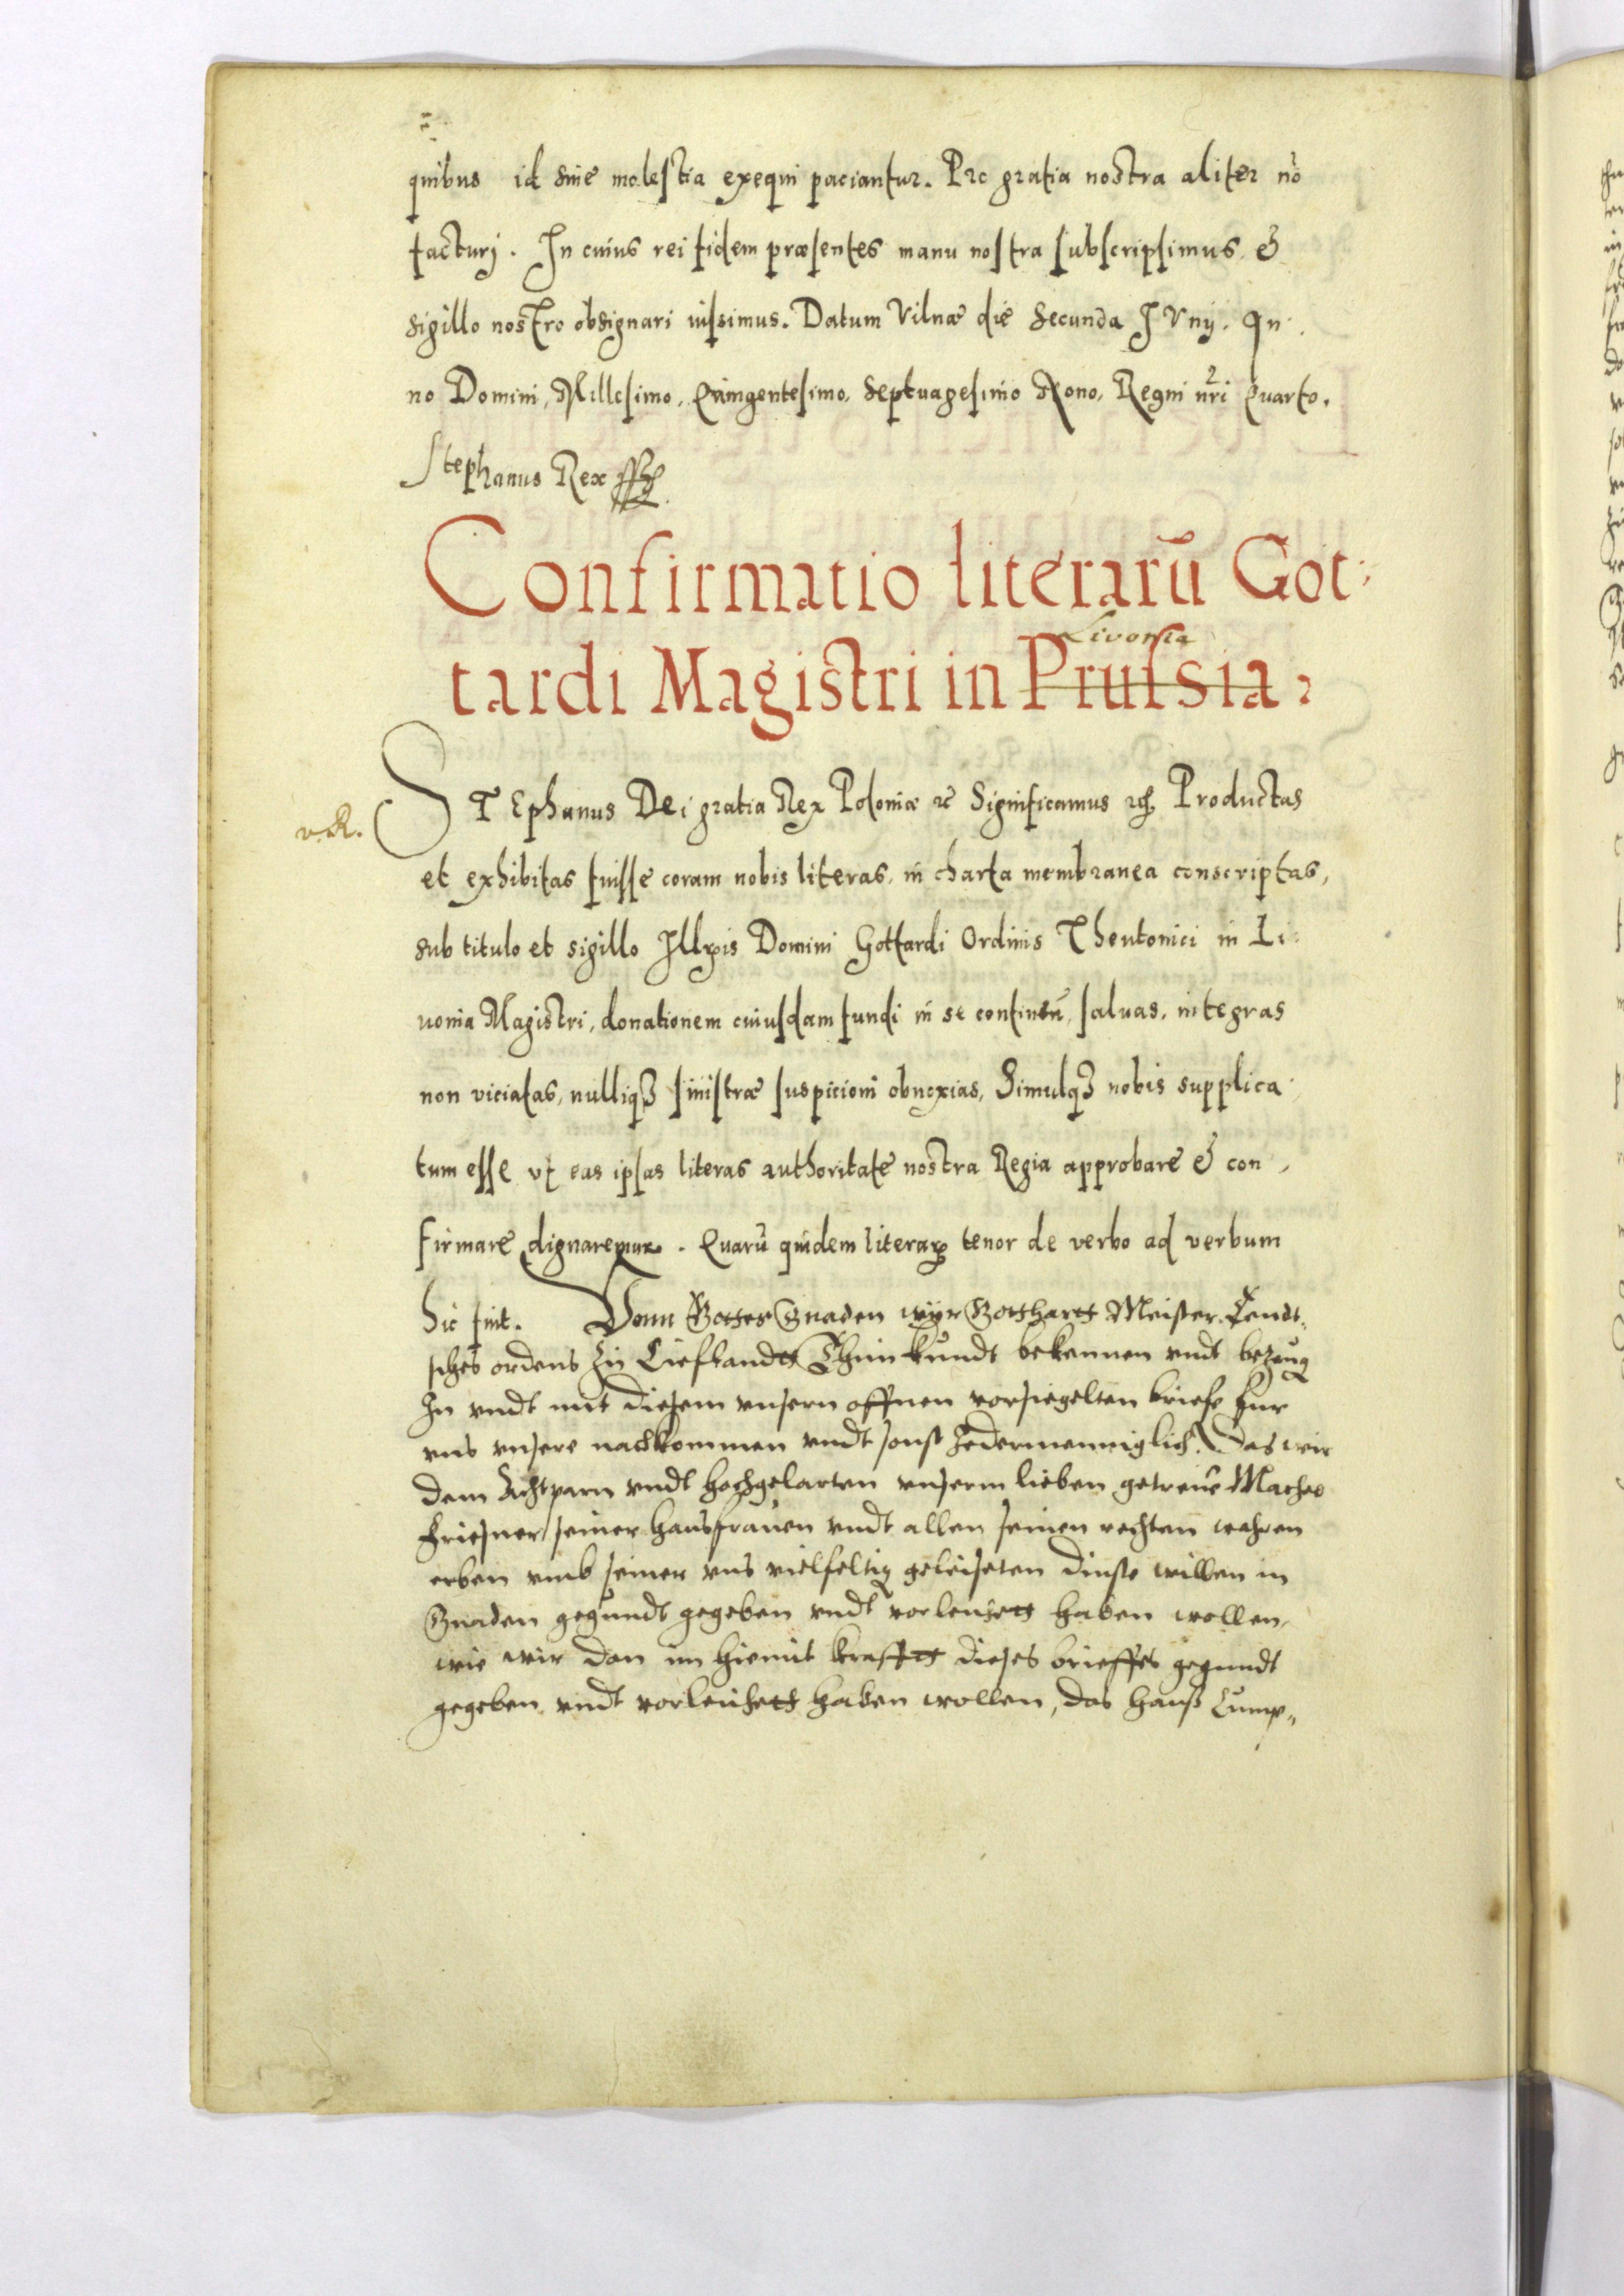 quibus id sine molestia exequi paciantur. Pro gratia nostra aliter nō
facturj. In cuius rei fidem præsentes manu nostra subscripsimus &
sigillo nostro obsignari iussimus. Datum Vilnæ die Secunda IVnij. An:
no Domini, Millesimo, Quingentesimo, Septuagesimo Nono, Regni nr̃i Quarto.
Stephanus Rex
Confirmatio literarū Got:
Livonia
tardi Magistri in Prussia.
v.R.
STEphanus Dei gratia Rex Poloniæ &c Significamus &c. Productas
et exhibitas fuisse coram nobis literas, in charta membranea conscriptas,
sub titulo et sigillo Illris Domini Gottardi Ordinis Theutonici in Li:
uonia Magistri, donationem cuiusdam fundi in se continen̄, saluas, integras
non viciatas, nulliqꝫ sinistræ suspicioni obnoxias, Simulqꝫ nobis supplica:
tum esse vt eas ipsas literas authoritate nostra Regia approbare & con,
firmare dignaremur. Quarū quidem literaꝝ tenor de verbo ad verbum
hic fuit. Vonn Gottes Gnaden wyr Gotthartt Meister Teudt,
sches ordens zu Lieflandtt Thun kundt bekennen vndt bezeug
In vndt mit diesem vnsern offnen vorsiegelten briefe fur
vns vnsere nachkommen vndt sonst Jedermenniglich. Das wir
dem Achtparn vndt hochgelarten vnserm lieben getreuē Matheo
Friesner seiner hausfrauen vndt allen seinen rechten wahren
erben vmb seiner vns vielfeltig geleiseten dinste willen in
Gnaden gegundt gegeben vndt vorleuhett haben wollen,
wie wir dan im hiemit krafftt dieses brieffes gegundt
gegeben vndt vorleuhett haben wollen, das hauß Lump,,